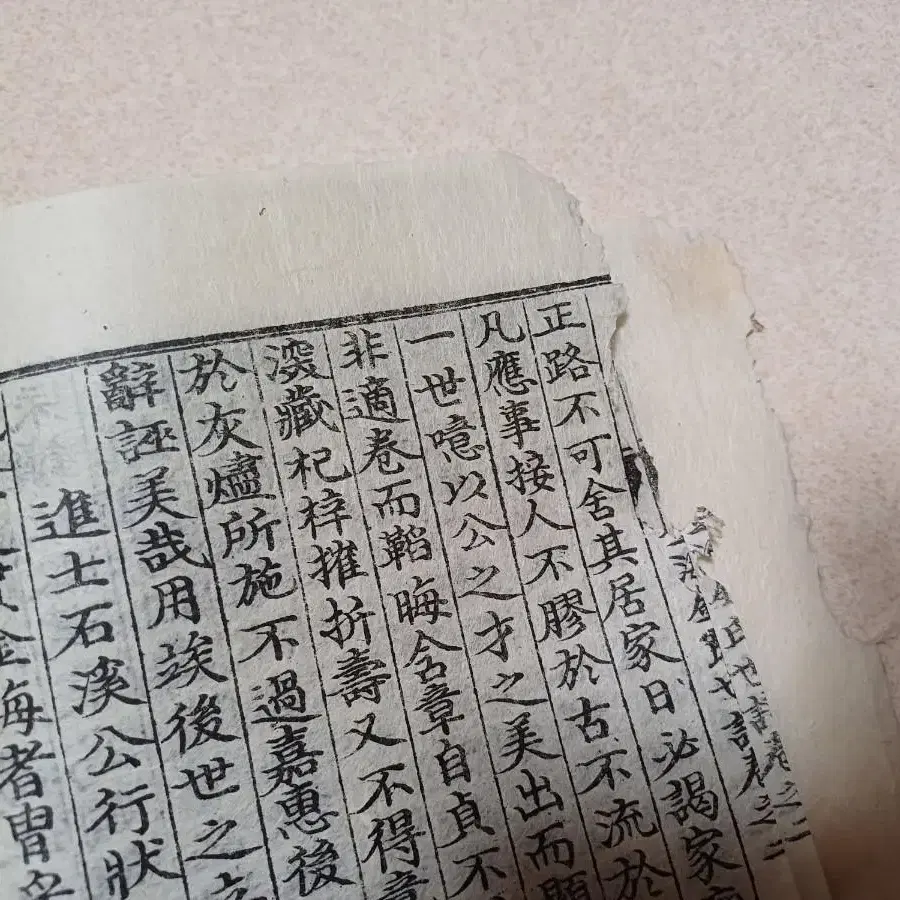 地誌卷之二
正路不可舍其居家日必謁家
凡應事接人不膠於古不流於
一世噫以公之才之美出而
非適卷而韜晦含章自貞不
深藏杞梓摧折壽又不得
於灰燼所施不過嘉惠後
辭誣美哉用竢後世之
進士石溪公行狀
金海者